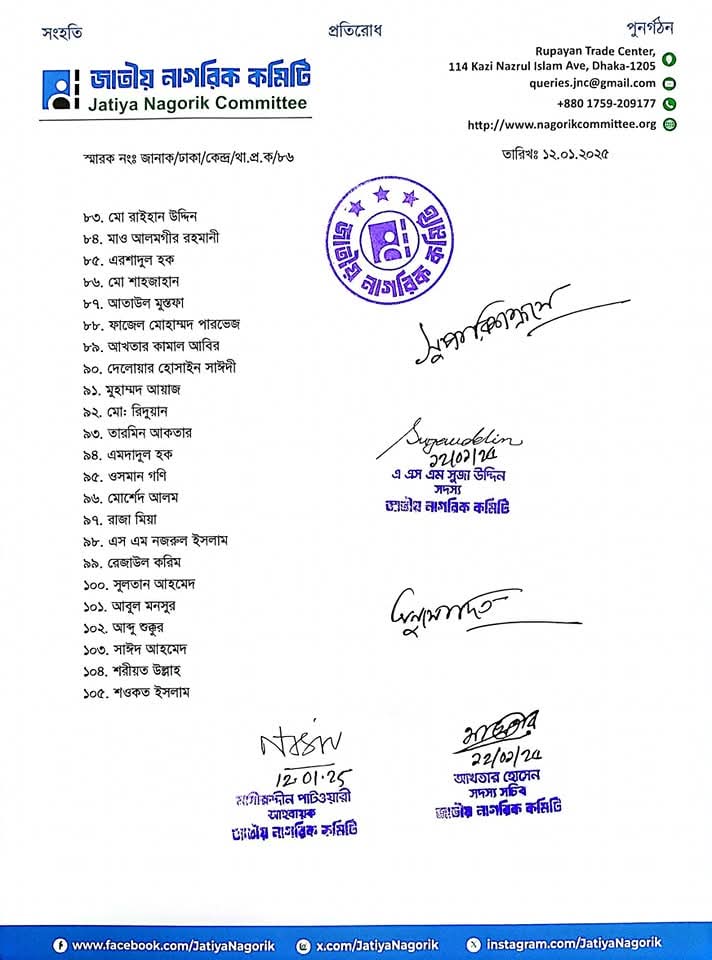 সংহতি
প্রতিরোধ
পুনর্গঠন
জাতীয় নাগরিক কমিটি
Jatiya Nagorik Committee
Rupayan Trade Center,
114 Kazi Nazrul Islam Ave, Dhaka-1205
queries.jnc@gmail.com
+880 1759-209177
http://www.nagorikcommittee.org
স্মারক নংঃ জানাক/ঢাকা/কেন্দ্র/থা.প্র.ক/৮৬
তারিখঃ ১২.০১.২০২৫
৮৩. মো রাইহান উদ্দিন
৮৪. মাও আলমগীর রহমানী
৮৫. এরশাদুল হক
৮৬. মো শাহজাহান
৮৭. আতাউল মুস্তফা
৮৮. ফাজেল মোহাম্মদ পারভেজ
৮৯. আখতার কামাল আবির
৯০. দেলোয়ার হোসাইন সাঈদী
৯১. মুহাম্মদ আয়াজ
৯২. মো: রিদুয়ান
৯৩. তারমিন আকতার
৯৪. এমদাদুল হক
৯৫. ওসমান গণি
৯৬. মোর্শেদ আলম
৯৭. রাজা মিয়া
৯৮. এস এম নজরুল ইসলাম
৯৯. রেজাউল করিম
১০০. সুলতান আহমেদ
১০১. আবুল মনসুর
১০২. আব্দু শুক্কুর
১০৩. সাঈদ আহমেদ
১০৪. শরীয়ত উল্লাহ
১০৫. শওকত ইসলাম
জাতীয় নাগরিক কমিটি
সুপারিশক্রমে
Sujauddin
১২/০১/২৫
এ এস এম সুজা উদ্দিন
সদস্য
জাতীয় নাগরিক কমিটি
অনুমোদিত
Nasir
12.01.25
নাসীরুদ্দীন পাটওয়ারী
আহবায়ক
জাতীয় নাগরিক কমিটি
আখতার
১২/০১/২৫
আখতার হোসেন
সদস্য সচিব
জাতীয় নাগরিক কমিটি
www.facebook.com/JatiyaNagorik
x.com/JatiyaNagorik
instagram.com/JatiyaNagorik